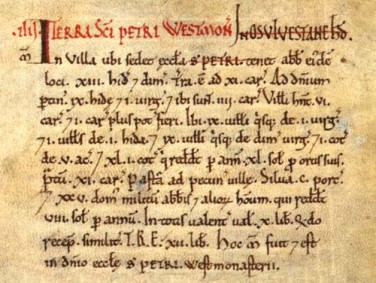 .IIII. TERRA SCI PETRI WESTMON̄. IN OSULVESTANE HD̄.
M̄ In Villa ubi sedet æccła S PETRI. tenet abb̄ ejd̄e
loci. XIII. hid̄ 7 dim̄. Tra. ē ad XI. car̄. Ad dnium
ptin̄. IX. hidę 7 I. virg̃. 7 ibi sunt. IIII. car̄. Villi hn̄t. VI.
car̄. 7 I. car̄ plus pot̄ fieri. Ibi. IX. uilli qsq; de. I. virg̃.
7 I. uilłs de. I. hida. 7 IX. uilli qsq; de dim̄. virg̃. 7 I. cot̄
de. V. ac̄s. 7 XLI. cot̄ q̃ redd̄t p ann̄. XL. sol p ortis suis.
Ptū. XI. car̄. Pasta ad pecun̄ uillę. Silua. C. porc̄.
7 XXV. dom̄ militū abb̄is 7 alioꝝ houm̄. qui redd̄t
VIII. sol p annū. In totis ualent̄ ual. X. lib̄. Q̄do
recep̄. similit̄. T.R.E. XII. lib̄. Hoc M̄ fuit 7 est
in dn̄io æcclę S PETRI. Westmonasterii.